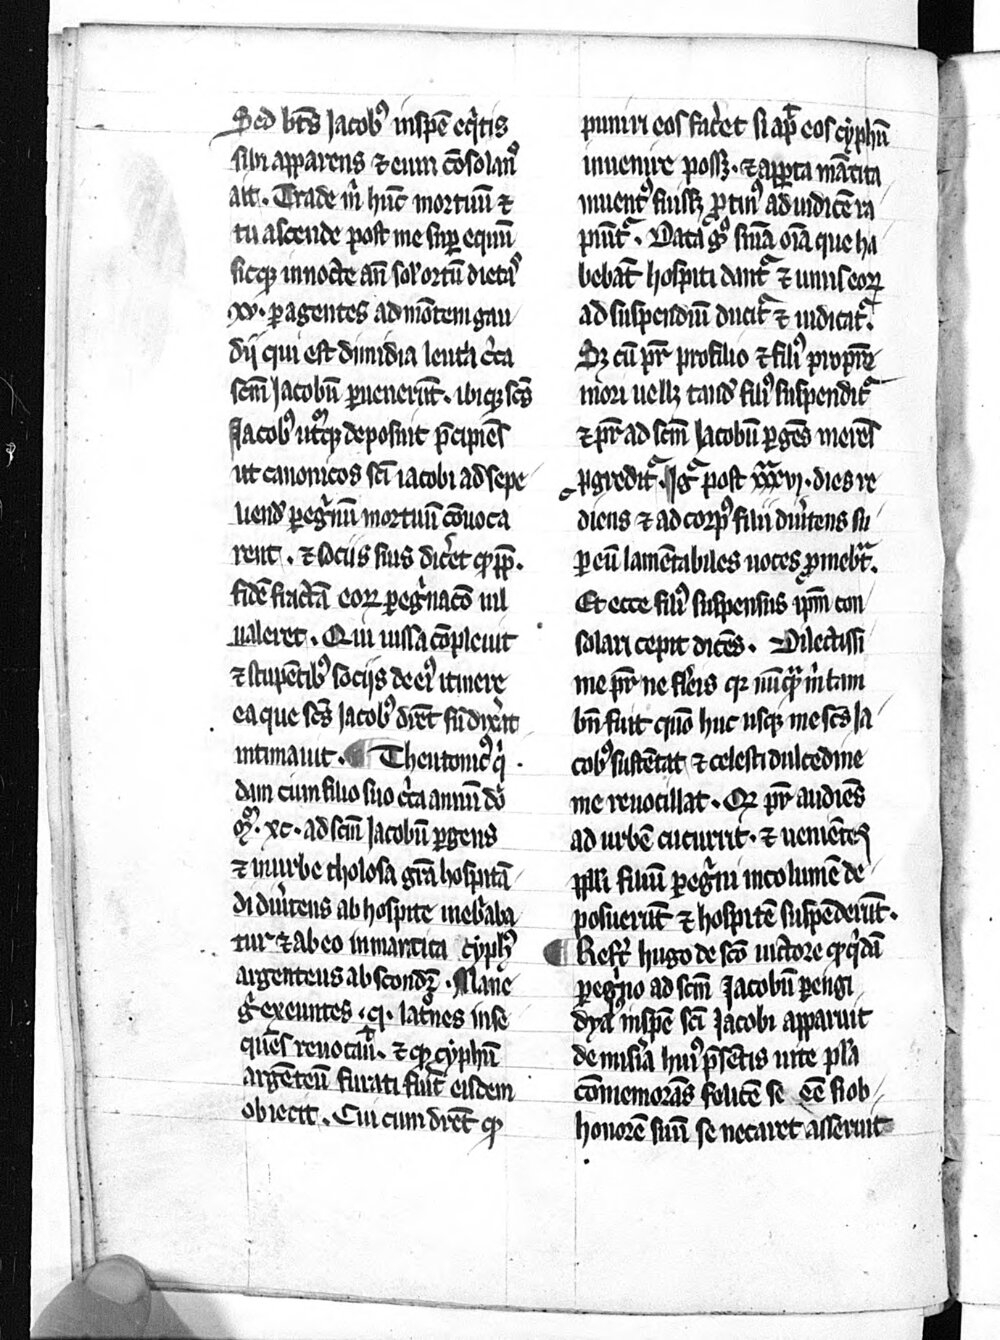 Sed bts Jacob⁹ inspē eqͥtis
sibi apparens ⁊ eum cōsolans
ait. Trade m̄ hūc mortuū ⁊
tu ascende post me sup̱ equū
sicqꝫ in nocte an̄ sol᾽ ortū dieta᷑
xv. ꝑagentes ad mōtem gau
dij qui est dimidia leuca cͥca
scm̄ Jacobū ꝑuenerūt. ibiqꝫ scs̄
Jacob⁹ utrūqꝫ deposuit p̄cipiēs
ut canonicos scī iacobi ad sepe
liend᾽ ꝑegͥnū mortuū cōuoca
rent. ⁊ sociis suis dic̓et ꝙ ꝓpꝑ.
fidē fractā eoꝝ ꝑegͥnacō nil
ualeret. Qui iussa cōpleuit
⁊ stupētib⁹ socijs de ei⁹ itinere
ea que scs̄ Jacob⁹ dix̓et sn̄ dix̓at
intimauit. Theutonic⁹ qͥ
dam cum filio suo cͥca annū dō
m̊. xc. ad scm̄ Jacobū ꝑgens
⁊ in urbe tholosa grā hospitā
di diu̓tens ab hospite inebͥaba
tur ⁊ ab eo in mantica cyph⁹
argenteus abscondꝝ. Mane
gͥ exeuntes. qͥ. latͦnes inse
quēs reuocauit. ⁊ ꝙ cyphū
argēteū furati fuīt eisdem
obiecit. Cui cum dicēt ꝙ
puniri eos fac̓et si apͩ eos cyphū
inuenire possꝫ. ⁊ appta mātica
inuent⁹ fuissꝫ ꝓtin⁹ ad iudicē ra
piūt᷑. Data gͦ sn̄ia oīa que ha
bebāt hospiti dant᷑ ⁊ unus eoꝝ
ad suspendiū ducit᷑ ⁊ iudicat᷑.
Sꝫ cū pr̄ pro filio ⁊ fili⁹ pro pr̄e
mori uellꝫ tand᾽ fili⁹ suspendit᷑
⁊ pr̄ ad scm̄ Jacobū ꝑgēs merēs
ꝓgredit᷑. Jgͥ post xxxvi. dies re
diens ⁊ ad corp⁹ filii diu̓tens su
ꝑ eū lamētabiles uoces ꝓmebat᷑.
Et ecce fili⁹ suspensus ipm̄ con
solari cepit dicēs. Dilectissi
me pr̄ ne fl̓eis qꝛ nūqͣ m̄ tam
bn̄ fuit quō huc usqꝫ me scs̄ Ja
cob⁹ sustētat ⁊ celesti dulcedine
me renocillat. Qꝫ pr̄ audiens
ad urbē cucurrit. ⁊ uenientes
ppli filiū ꝑegͥni incolumē de
posuerūt ⁊ hospitē suspēderūt.
Refert hugo de scō uictore ꝙ qͥdā
ꝑegͥno ad scm̄ Jacobū ꝑeugi
dyaͥ in spē scī Jacobi apparuit
de mis̓ia hui⁹ p̄sētis uite pl̓a
cōmemorās felicē se eē si ob
honorē suū se necaret asseruit